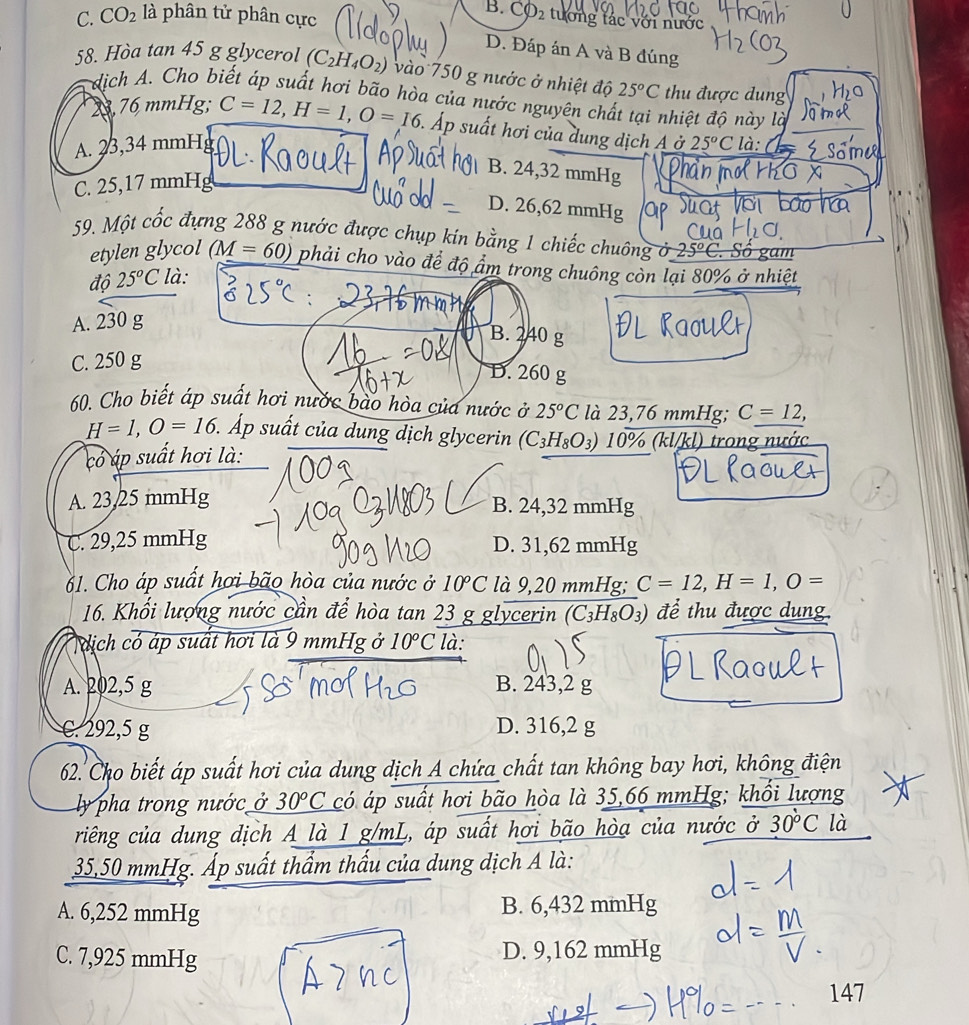 C. CO₂ là phân tử phân cực
B. CO₂ tương tác với nước
D. Đáp án A và B đúng
H₂CO₃
58. Hòa tan 45 g glycerol (C₂H₄O₂) vào 750 g nước ở nhiệt độ 25°C thu được dung
dịch A. Cho biết áp suất hơi bão hòa của nước nguyên chất tại nhiệt độ này là
23,76 mmHg; C = 12, H = 1, O = 16. Áp suất hơi của dung dịch A ở 25°C là:
A. 23,34 mmHg
B. 24,32 mmHg
C. 25,17 mmHg
D. 26,62 mmHg
ĐL. Raoult
Áp suất hơi
của dd =
phần mol H₂O x
áp suất hơi bão hòa
của H₂O.
59. Một cốc đựng 288 g nước được chụp kín bằng 1 chiếc chuông ở 25°C. Số gam
etylen glycol (M = 60) phải cho vào để độ ẩm trong chuông còn lại 80% ở nhiệt
độ 25°C là:
ở 25°C : 23,76 mmHg
A. 230 g
B. 240 g
C. 250 g
D. 260 g
16/16+x = 0,8
ĐL Raoult
60. Cho biết áp suất hơi nước bão hòa của nước ở 25°C là 23,76 mmHg; C = 12,
H = 1, O = 16. Áp suất của dung dịch glycerin (C₃H₈O₃) 10% (kl/kl) trong nước
có áp suất hơi là:
ĐL Raoult
A. 23,25 mmHg
B. 24,32 mmHg
C. 29,25 mmHg
D. 31,62 mmHg
100g
→ 10g C₃H₈O₃
90g H₂O
61. Cho áp suất hơi bão hòa của nước ở 10°C là 9,20 mmHg; C = 12, H = 1, O =
16. Khối lượng nước cần để hòa tan 23 g glycerin (C₃H₈O₃) để thu được dung
dịch có áp suất hơi là 9 mmHg ở 10°C là:
A. 202,5 g
B. 243,2 g
C. 292,5 g
D. 316,2 g
Số mol H₂O
ĐL Raoult
62. Cho biết áp suất hơi của dung dịch A chứa chất tan không bay hơi, không điện
ly pha trong nước ở 30°C có áp suất hơi bão hòa là 35,66 mmHg; khối lượng
riêng của dung dịch A là 1 g/mL, áp suất hơi bão hòa của nước ở 30°C là
35,50 mmHg. Áp suất thẩm thấu của dung dịch A là:
A. 6,252 mmHg
B. 6,432 mmHg
C. 7,925 mmHg
D. 9,162 mmHg
d = 1
d = m/V.
→ H% = ....
147